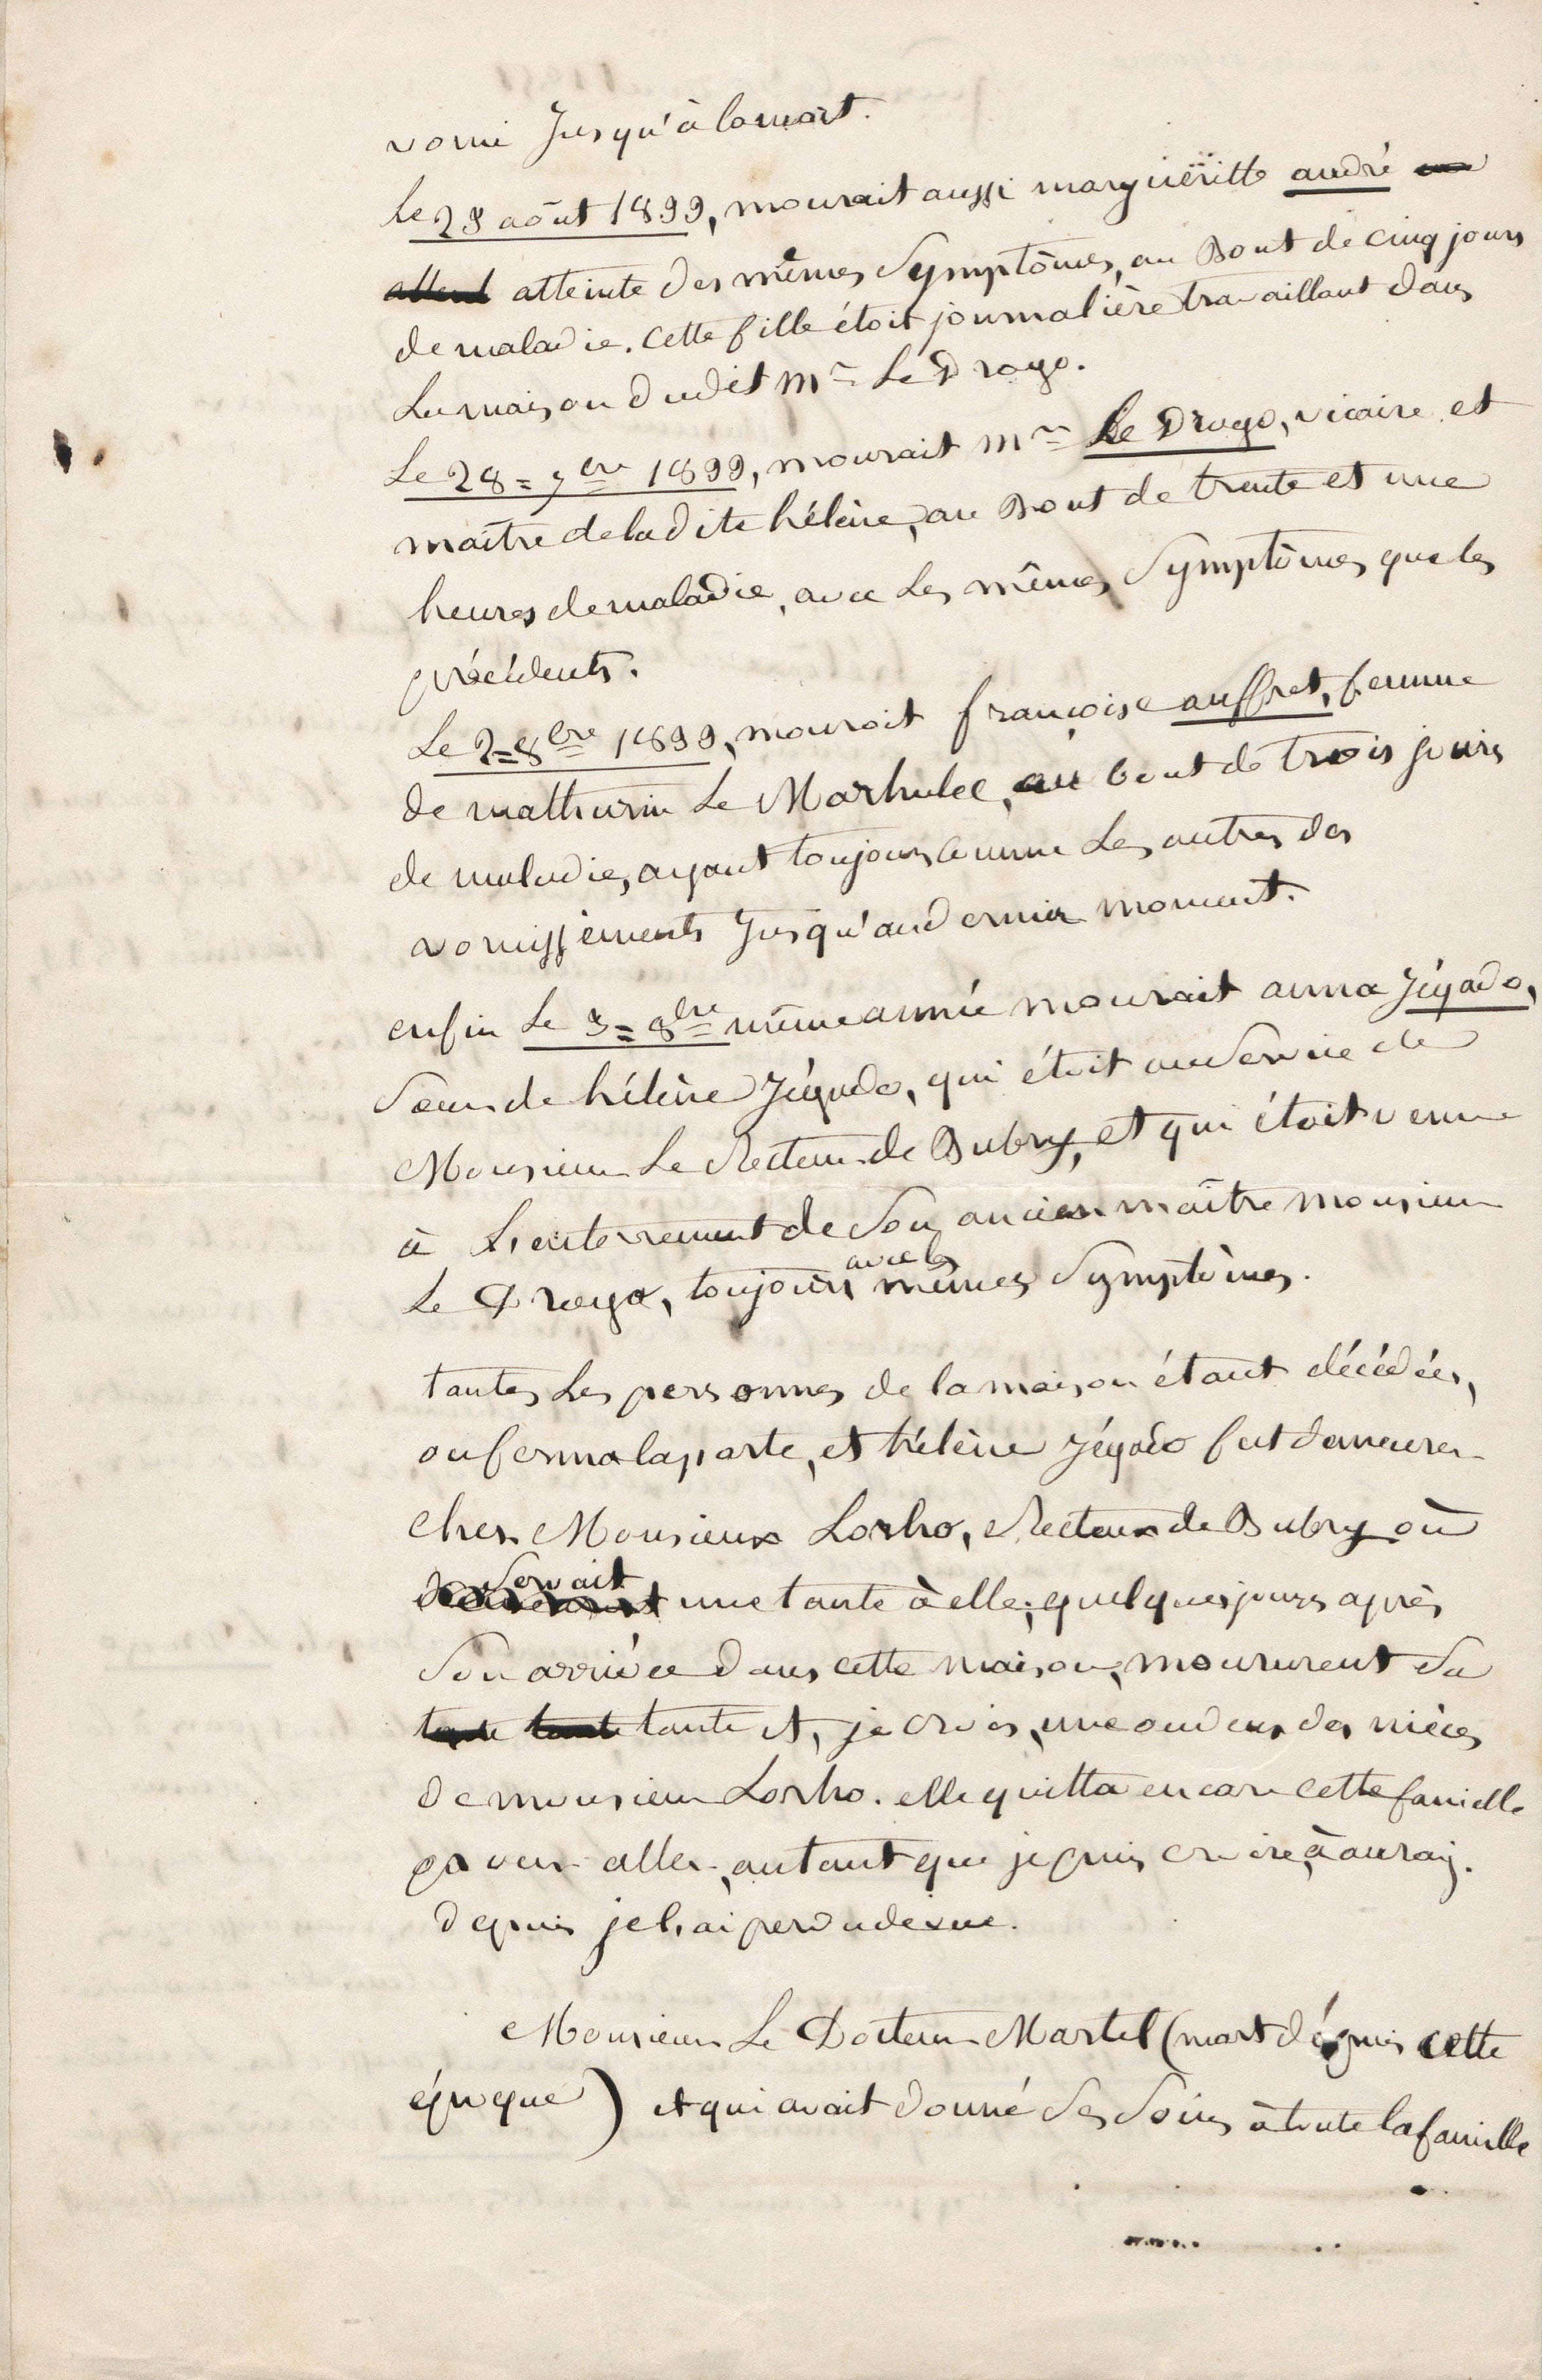 vomi jusqu'à la mort.
le 28 août 1833, mourait aussi marguëritte andré
atteinte des mêmes symptômes, au bout de cinq jours
de maladie. cette fille étoit journalière travaillant dans
la maison dudit mr Le Drogo.
Le 28 = 7bre 1833, mourait mr Le Drogo, vicaire et
maître de la dite hélène, au bout de trente et une
heures de maladie, avec les mêmes symptômes que les
précédents.
Le 2 = 8bre 1833, mouroit françoise auffret, femme
de mathurin Le Marhulec, au bout de trois jours
de maladie, ayant toujours comme les autres des
vomissements jusqu'au dernier moment.
enfin Le 3 = 8bre même année mourait anna Jégado,
soeur de hélène Jégado, qui étoit au service de
Monsieur Le Recteur de Bubry, et qui étoit venue
à l'enterrement de son ancien maître monsieur
Le Drogo, toujours avec les mêmes symptômes.
toutes les personnes de la maison étant décédées,
on ferma la porte, et hélène Jégado fut demeurer
chez Monsieur Lorho, Recteur de Bubry où
servait une tante à elle; quelques jours après
son arrivée dans cette maison, moururent sa
tante et, je crois, une ou deux des nièces
de monsieur Lorho. elle quitta encore cette famille
pour aller, autant que je puis croire, à auray.
depuis je l'ai perdu de vue.
Monsieur Le Docteur Martel (mort depuis cette
époque) et qui avait donné ses soins à toute la famille